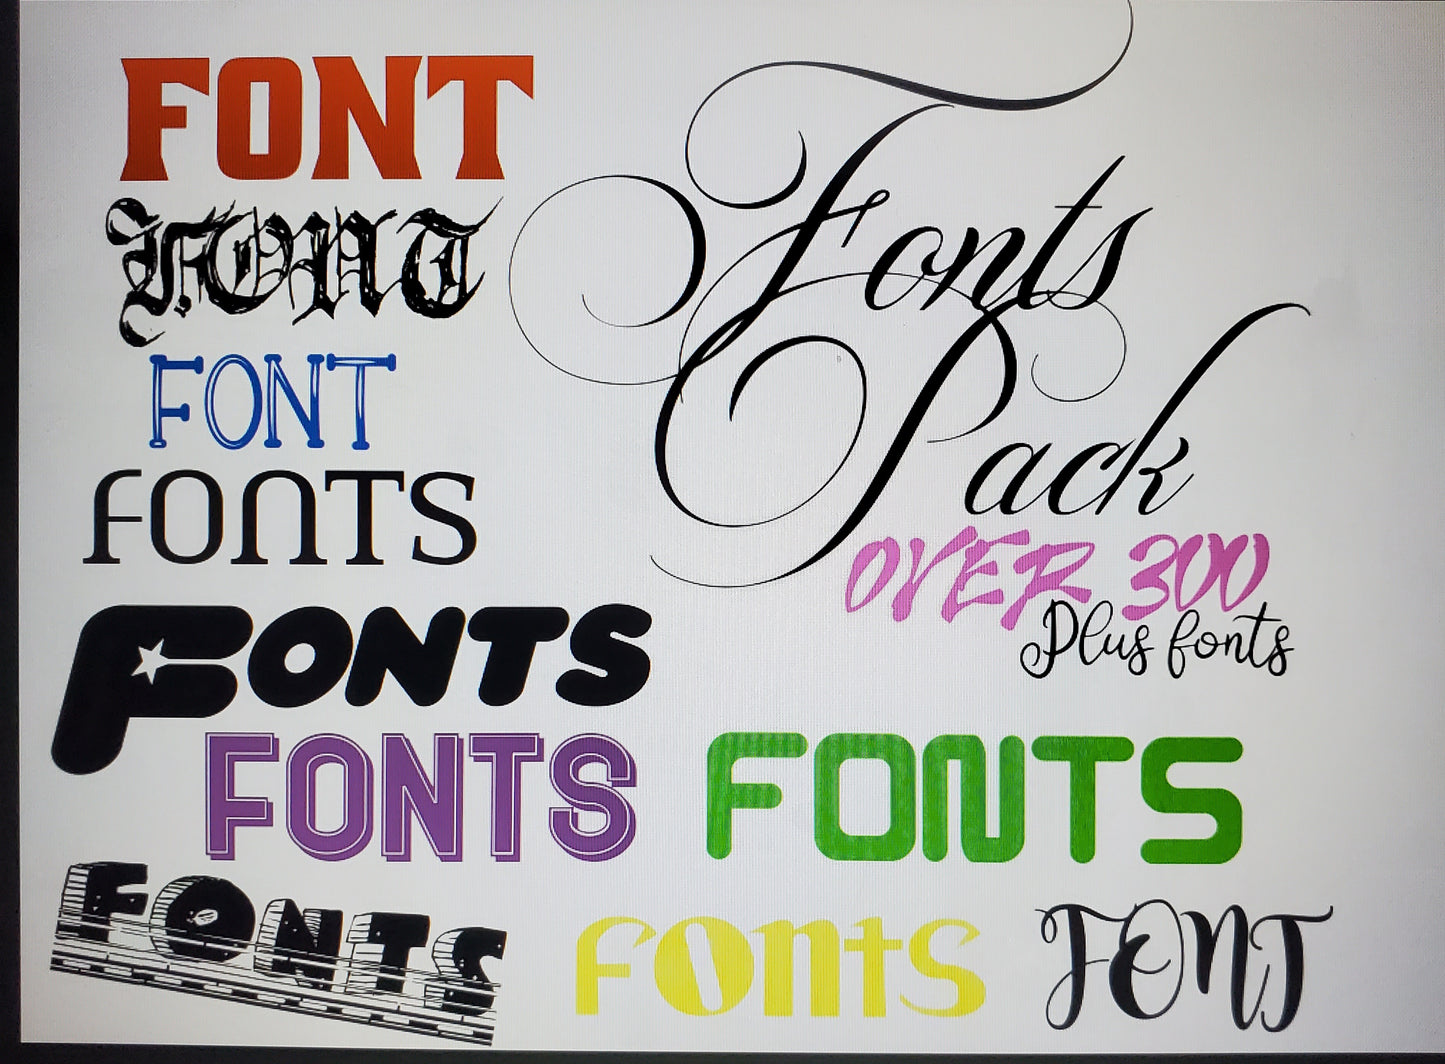 FONT
FONT
FONT
FONTS
FONTS
FONTS
FONTS
Fonts
Pack
OVER 300
Plus fonts
FONTS
fonts
FONT